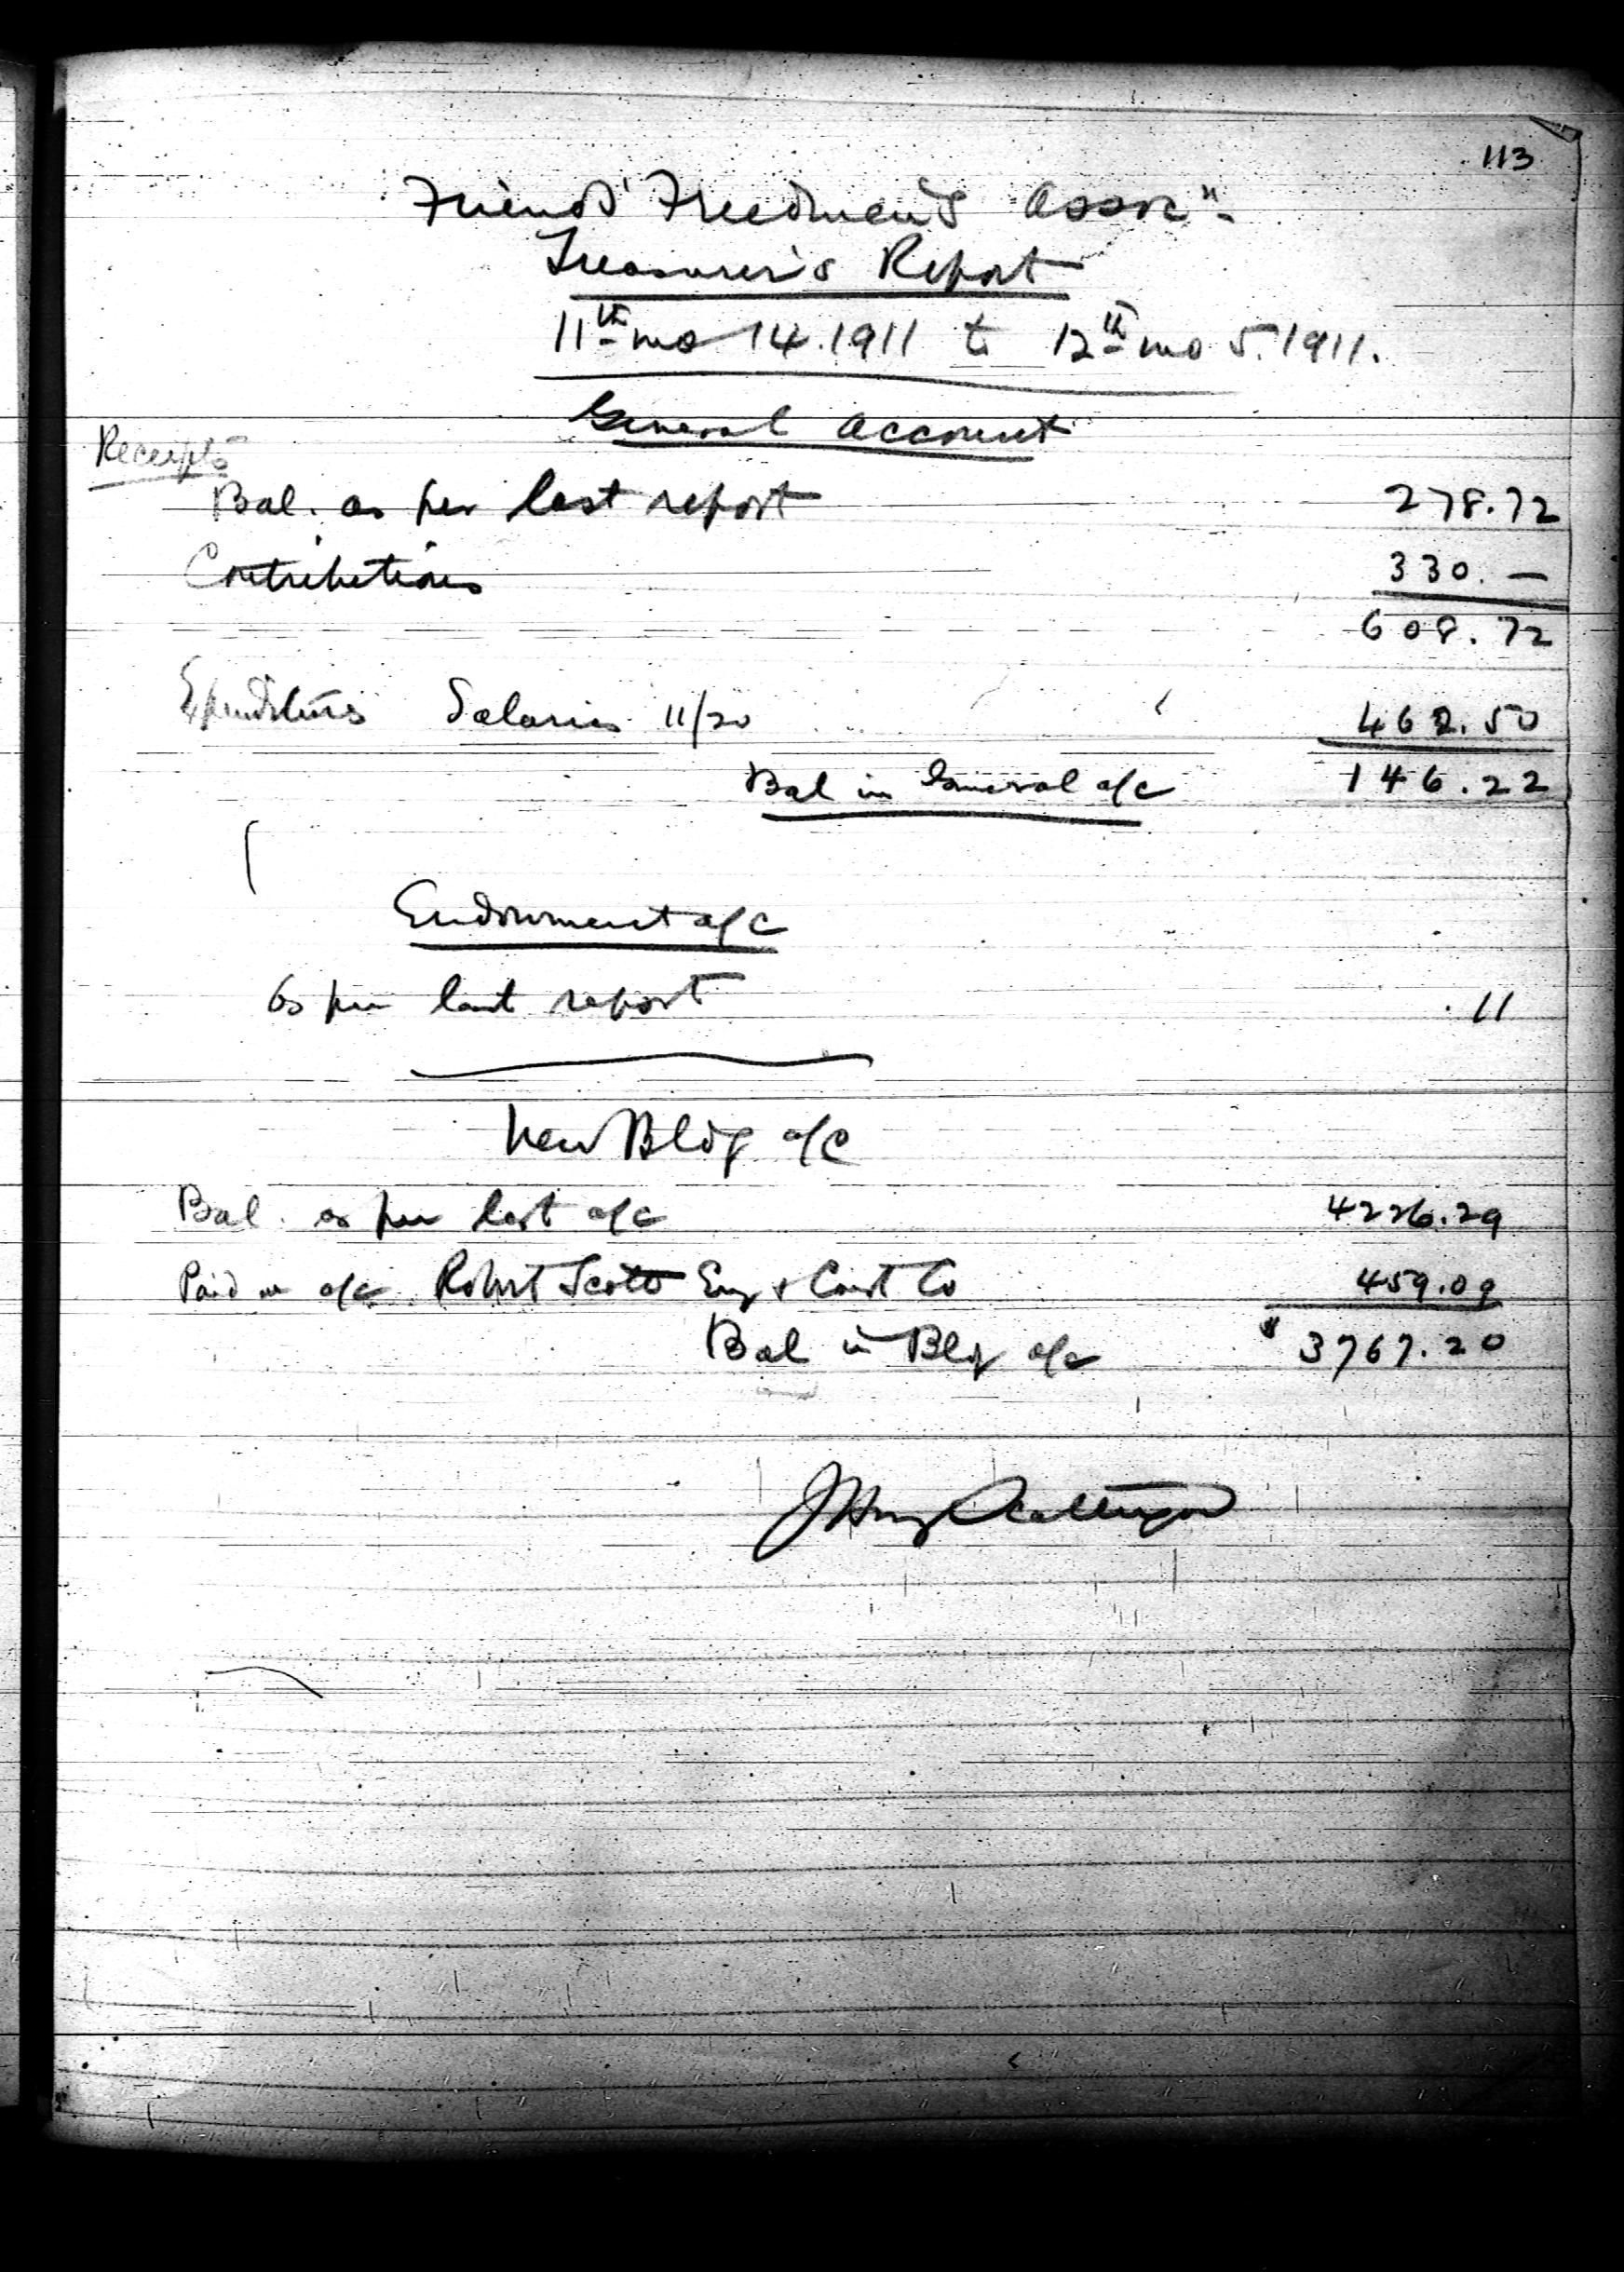 113
Friends' Freedmen's Assn
Treasurer's Report
11th mo 14.1911 to 12th mo 5.1911.
General Account
Receipts
Bal. as per last report 278.72
Contributions 330.—
608.72
Expenditures Salaries 11/20 462.50
Bal in General a/c 146.22
Endowment a/c
As per last report .11
New Bldg a/c
Bal. as per last a/c 4226.29
Paid on a/c Robert Scott Eng & Const Co 459.09
Bal in Bldg a/c $ 3767.20
J Henry Scattergood